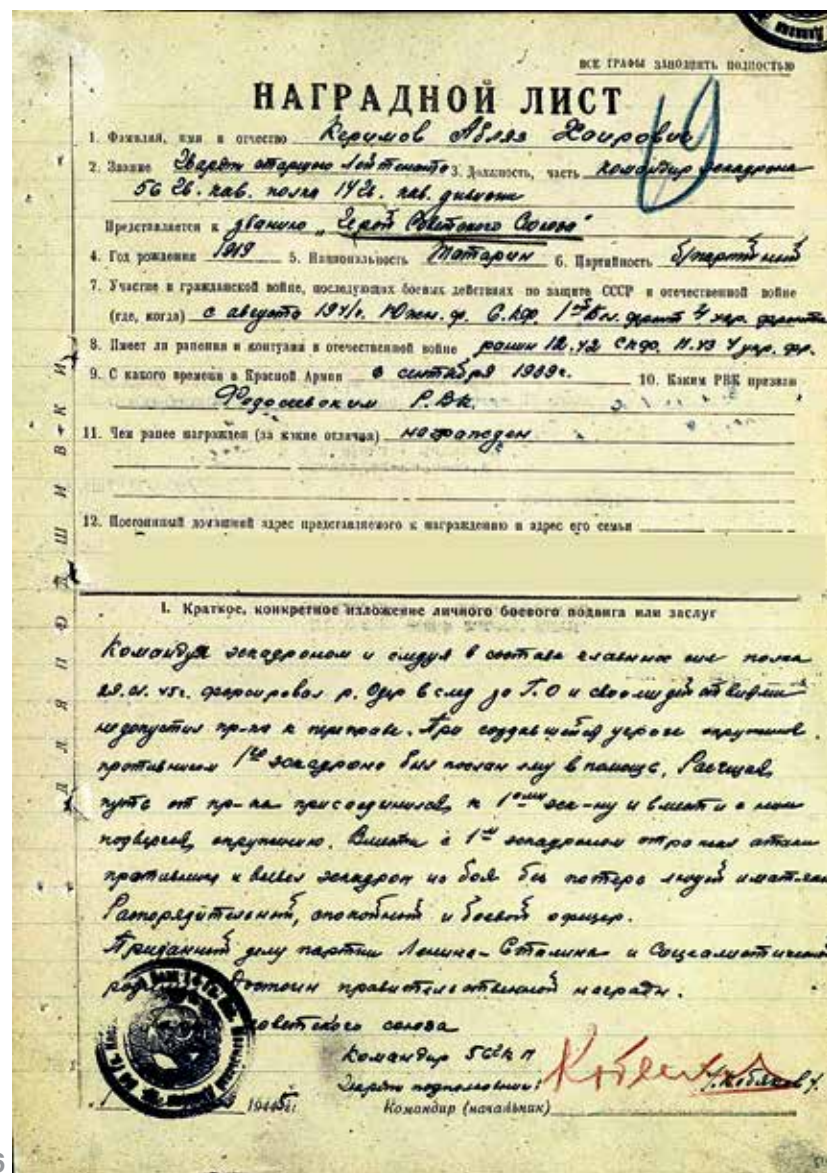 ВСЕ ГРАФЫ ЗАПОЛНЯТЬ ПОЛНОСТЬЮ
НАГРАДНОЙ ЛИСТ
19
1. Фамилия, имя и отчество Керимов Абляз Хаирович
2. Звание Гвардии старшего лейтенанта 3. Должность, часть командир эскадрона
56 Гв. кав. полка 14 Гв. кав. дивизии
Представляется к званию „Герой Советского Союза"
4. Год рождения 1919 5. Национальность татарин 6. Партийность б/партийный
7. Участие в гражданской войне, последующих боевых действиях по защите СССР и отечественной войне
(где, когда) с августа 1941г. Южн. ф. С.Кф. 1ый Бел. фронт 4 укр. фронта
8. Имеет ли ранения и контузии в отечественной войне ранин 12.42 СКФ. 11.43 4 укр. фр.
9. С какого времени в Красной Армии с сентября 1939г. 10. Каким РВК призван
Феодосийским Р.В.К.
11. Чем ранее награжден (за какие отличия) награжден
12. Постоянный домашний адрес представляемого к награждению и адрес его семьи
ДЛЯ ПОДШИВКИ
I. Краткое, конкретное изложение личного боевого подвига или заслуг
Командуя эскадроном и следуя в составе главных сил полка
29.01.45г. форсировал р. Одер в след за Г.О и своими действиями
недопустил пр-ка к переправе. При создавшейся угрозе окружения
противником 1го эскадрона был послан ему в помощь. Расчищая
путь от пр-ка присоединился к 1ому эск-ну и вместе с ним
подвергся окружению. Вместе с 1м эскадроном отражал атаки
противника и вывел эскадрон из боя без потерь людей и матчасти
Распорядительный, спокойный и боевой офицер.
Преданный делу партии Ленина-Сталина и Социалистической
Достоин правительственной награды.
Советского союза
Командир 56 гв. к п
Гвардии подполковник:
1945г.
Командир (начальник)